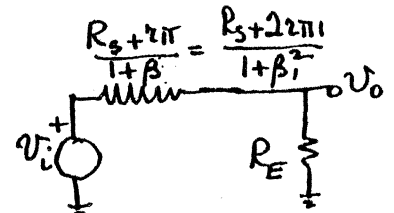 (R_s + rπ) / (1 + β) = (R_s + 2rπ1) / (1 + β₁²)
v_o
+
v_i
R_E